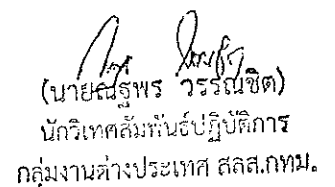 (นายณัฐพร วรรณชิต)
นักวิเทศสัมพันธ์ปฏิบัติการ
กลุ่มงานต่างประเทศ สลส.กทม.